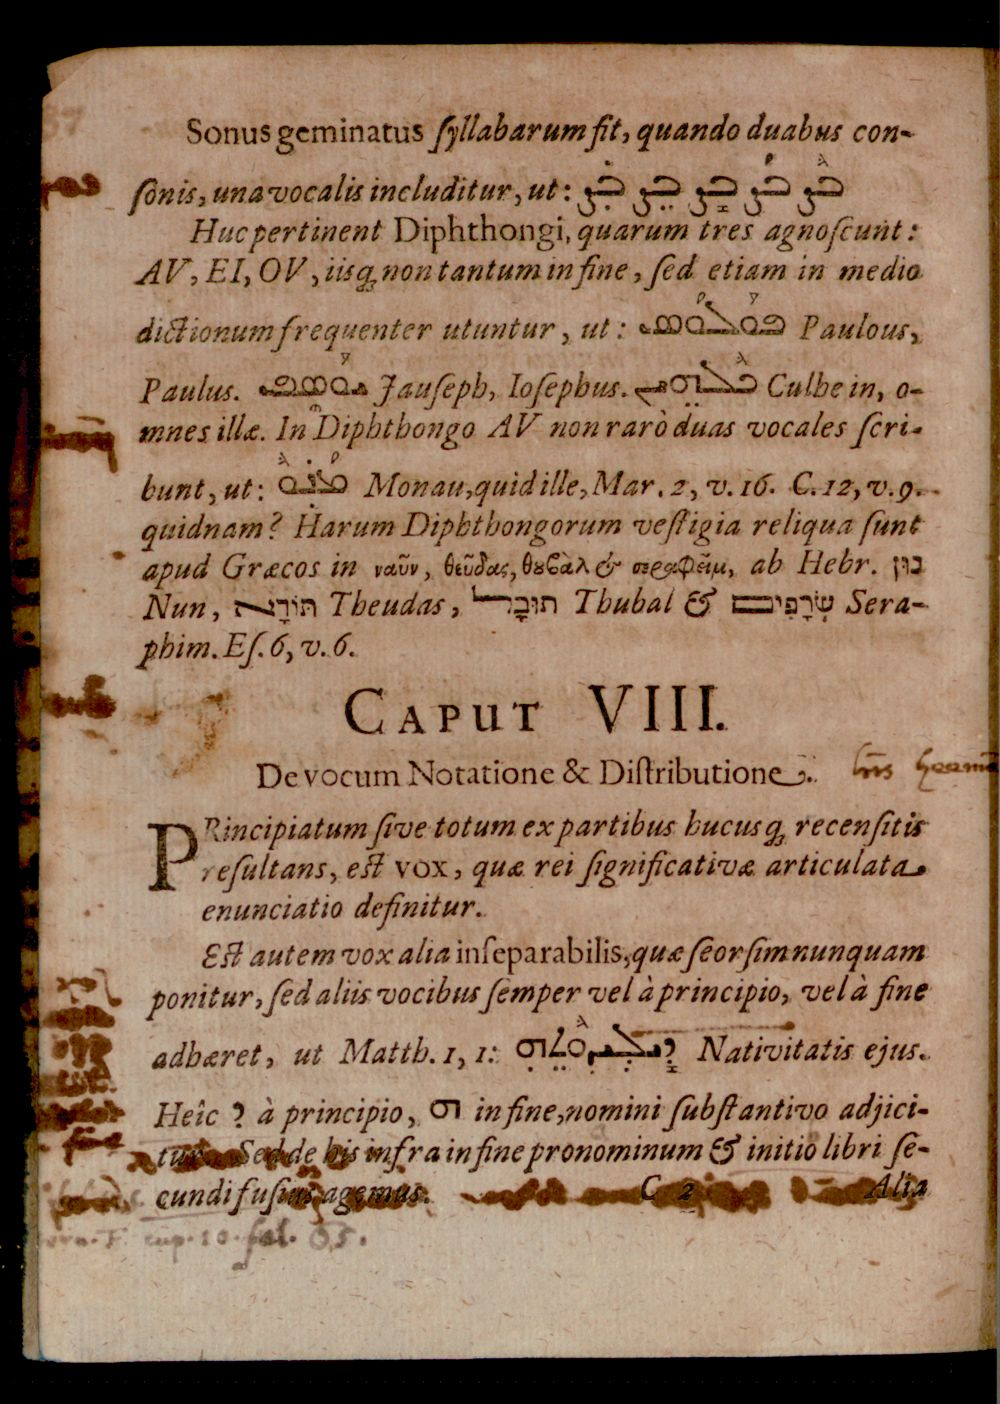 Sonus geminatus ſyllabarum fit, quando duabus con-
ſonis, una vocalis includitur, ut:
Huc pertinent Diphthongi, quarum tres agnoſcunt:
AV, EI, OV, iisq; non tantum in fine, ſed etiam in medio
dictionum frequenter utuntur, ut: ܦܘܠܘܣ Paulous,
Paulus. Jauſeph, Ioſephus. Culhein, o-
mnes illæ. In Diphthongo AV non rarò duas vocales ſcri-
bunt, ut: ܡܢܘ Monau, quid ille, Mar. 2, v. 16. C. 12, v. 9.
quidnam? Harum Diphthongorum veſtigia reliqua ſunt
apud Græcos in ναῦν, θεῦδας, & ab Hebr. נוּן
Nun, Theudas, Thubal & שְׂרָפִים Sera-
phim. Eſ. 6, v. 6.
CAPUT VIII.
De vocum Notatione & Diſtributione.
PRincipiatum ſive totum ex partibus hucusq; recenſitis
reſultans, eſt vox, quæ rei ſignificativæ articulata
enunciatio definitur.
Eſt autem vox alia inſeparabilis, quæ ſeorſim nunquam
ponitur, ſed aliis vocibus ſemper vel à principio, vel à fine
adhæret, ut Matth. 1, 1: Nativitatis ejus.
Heîc ܕ à principio, ܗ in fine, nomini ſubſtantivo adjici-
tur. Sed de his infra in fine pronominum & initio libri ſe-
cundi fuſius agemus. C 2 Alia